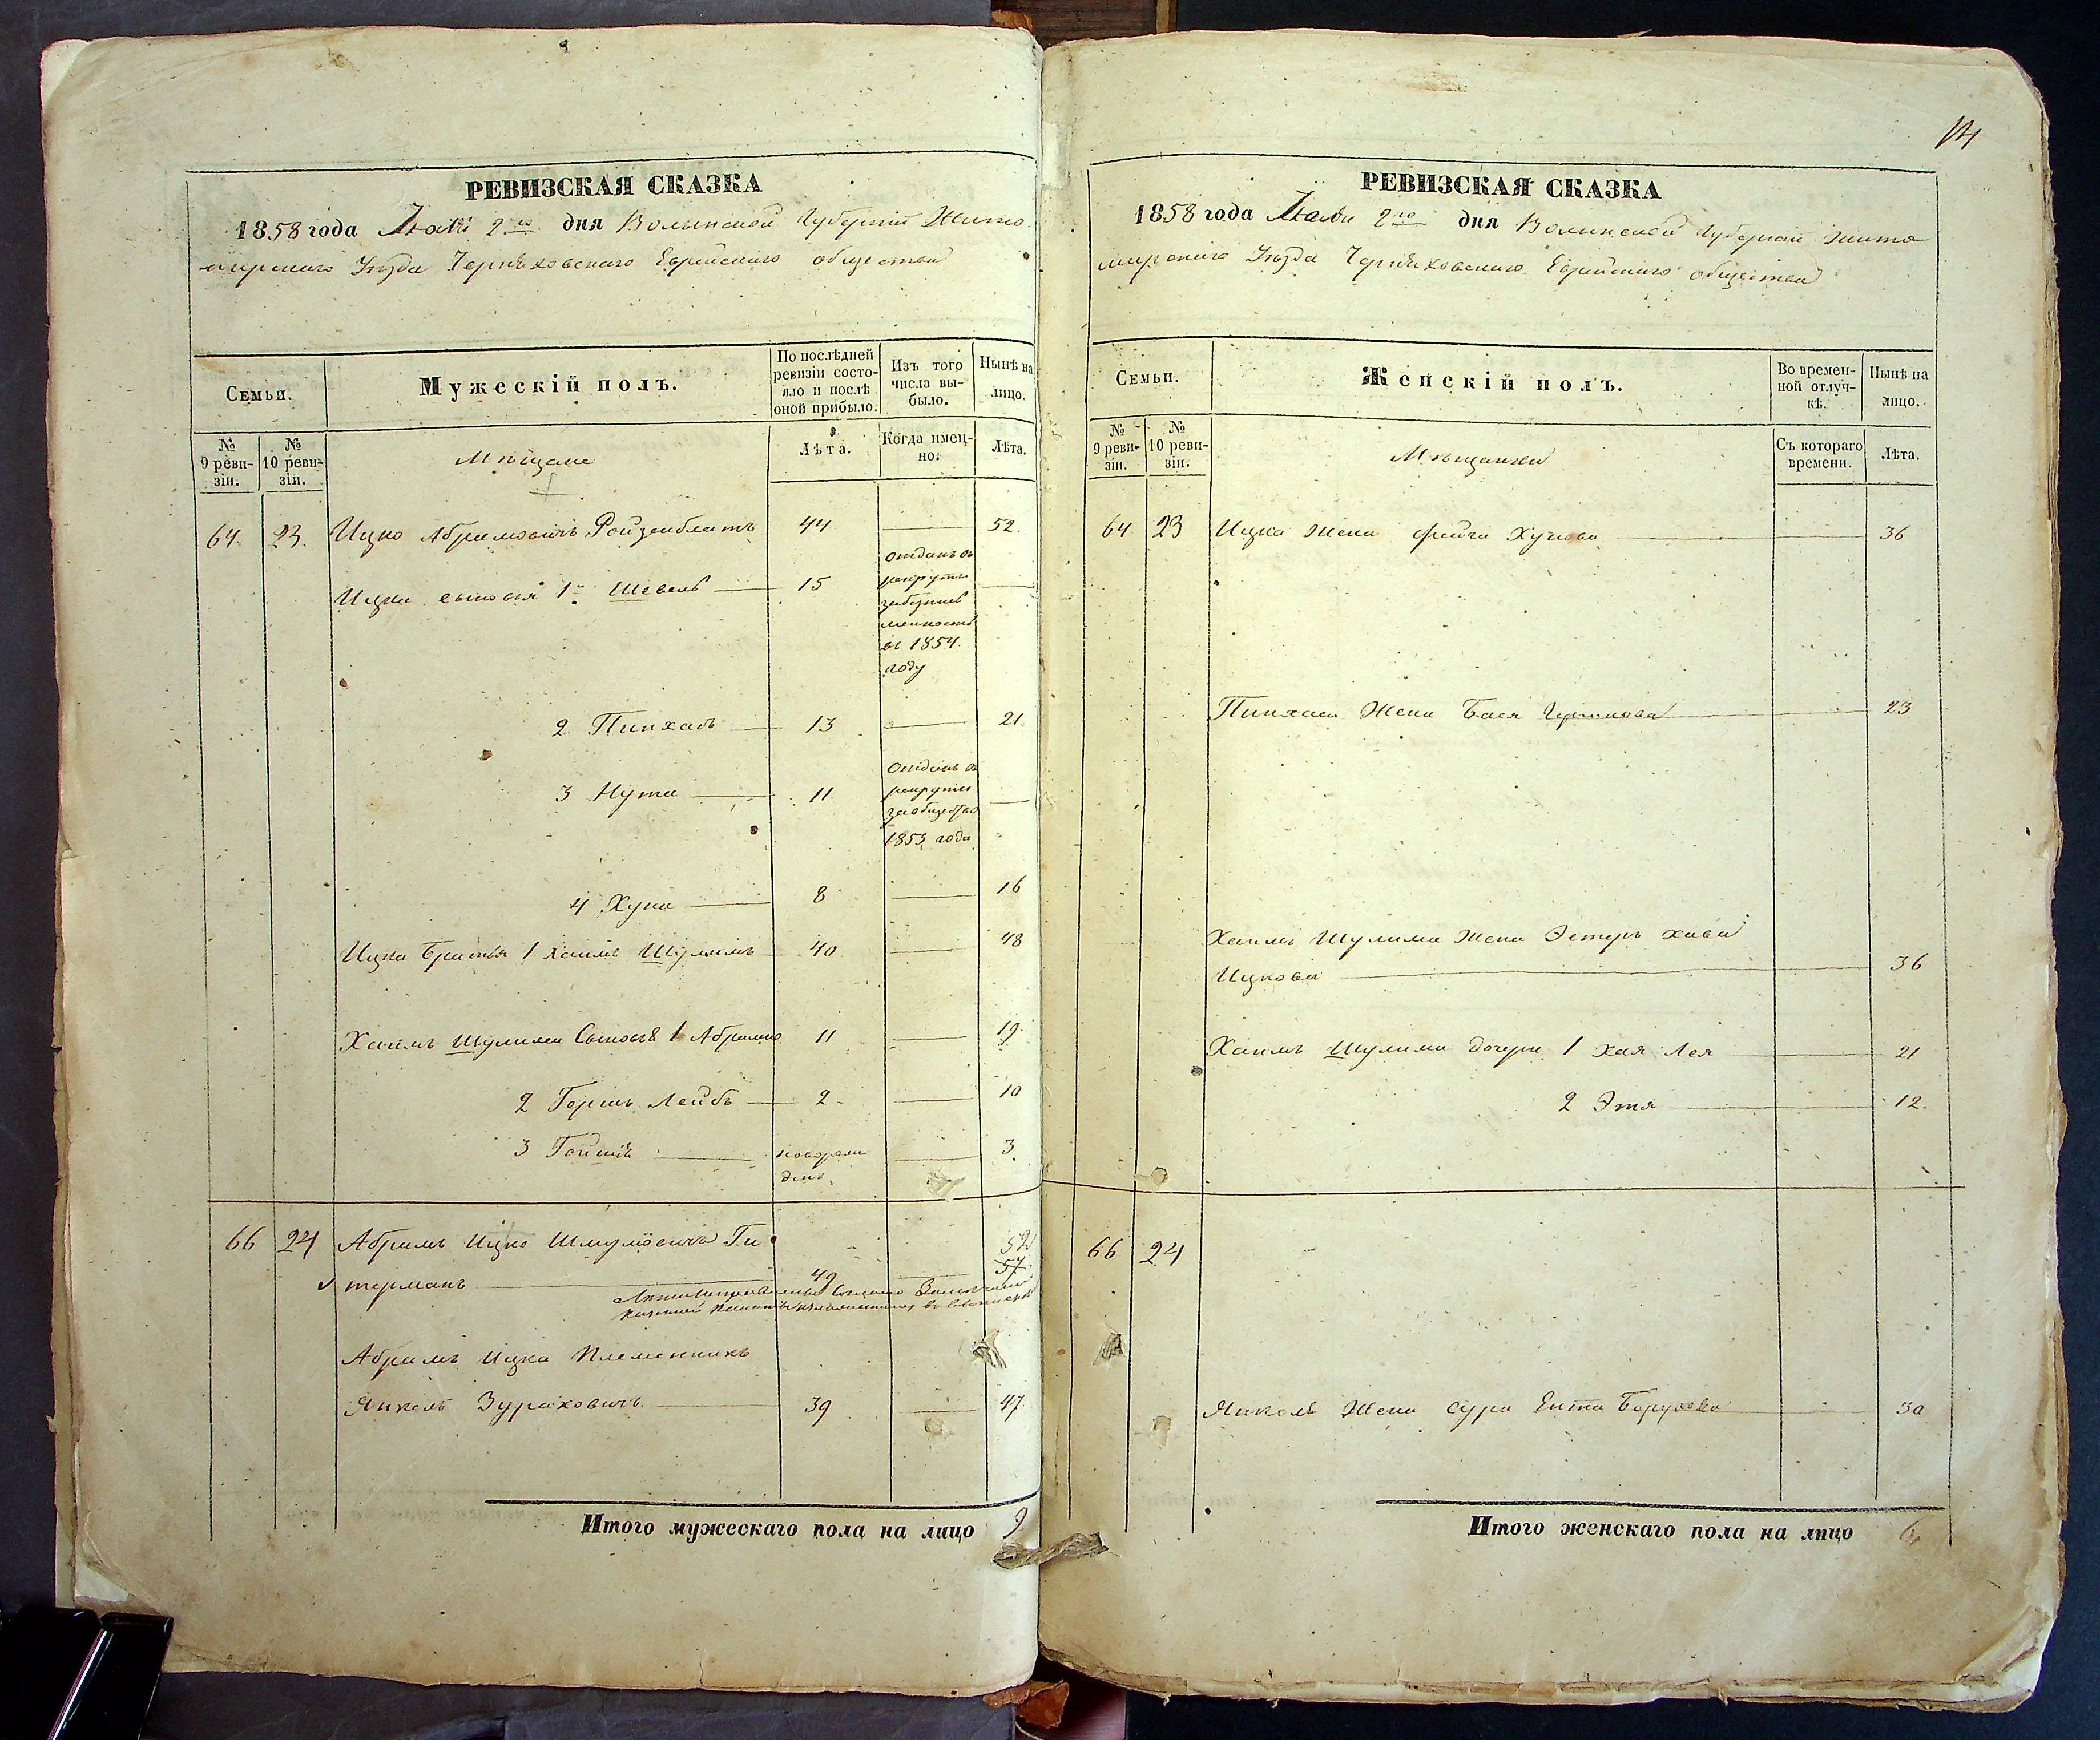 РЕВИЗСКАЯ СКАЗКА
1858 года Маія 2го дня Волынской Губерніи Жито
мирскаго Уѣзда Чернѣховскаго Еврейскаго общества
Семьи.
Мужескій полъ.
По послѣдней
ревизіи состо-
яло и послѣ
оной прибыло.
Изъ того
числа вы-
было.
Нынѣ на
лицо.
№
9 реви-
зіи.
№
10 реви-
зіи.
Мѣщане
Лѣта.
Когда имен-
но.
Лѣта.
64. 23. Ицко Абрамовичъ Ройзенблатъ 44 52.
Ицка сыновья 1й Шевель 15
отданъ въ
рекруты
въ 1854.
году
2 Пинхасъ 13 21
3 Нута 11
отданъ въ
рекруты
за общество
1853 года
4 Хуна 8 16
Ицка братья 1 Хаимъ Шулимъ 40 48
Хаимъ Шулима Сыновья 1 Абрамко 11 19.
2 Гершъ Лейбъ 2 10
3 Гойшія
новорож
денъ
3
66 24 Абрамъ Ицко Шмулёвичъ Ги
терманъ 49 52
57
Абрамъ Ицка Племенникъ
Янкель Зураховичъ 39 47.
Итого мужескаго пола на лицо 9
14
РЕВИЗСКАЯ СКАЗКА
1858 года Маія 2го дня Волынской Губерніи Жито
мирскаго Уѣзда Чернѣховскаго Еврейскаго общества
Семьи.
Женскій полъ.
Во времен-
ной отлуч-
кѣ.
Нынѣ на
лицо.
№
9 реви-
зіи.
№
10 реви-
зіи.
Мѣщанки
Съ котораго
времени.
Лѣта.
64 23 Ицка Жена Фейга Хунова 36
Пинхаса Жена Бася Гершкова 23
Хаимъ Шулима Жена Эстеръ Хава
Ицкова 36
Хаимъ Шулима дочери 1 Хая Лея 21
2 Этя 12.
66 24
Янкеля Жена Сура Ента Борухова 30
Итого женскаго пола на лицо 6,